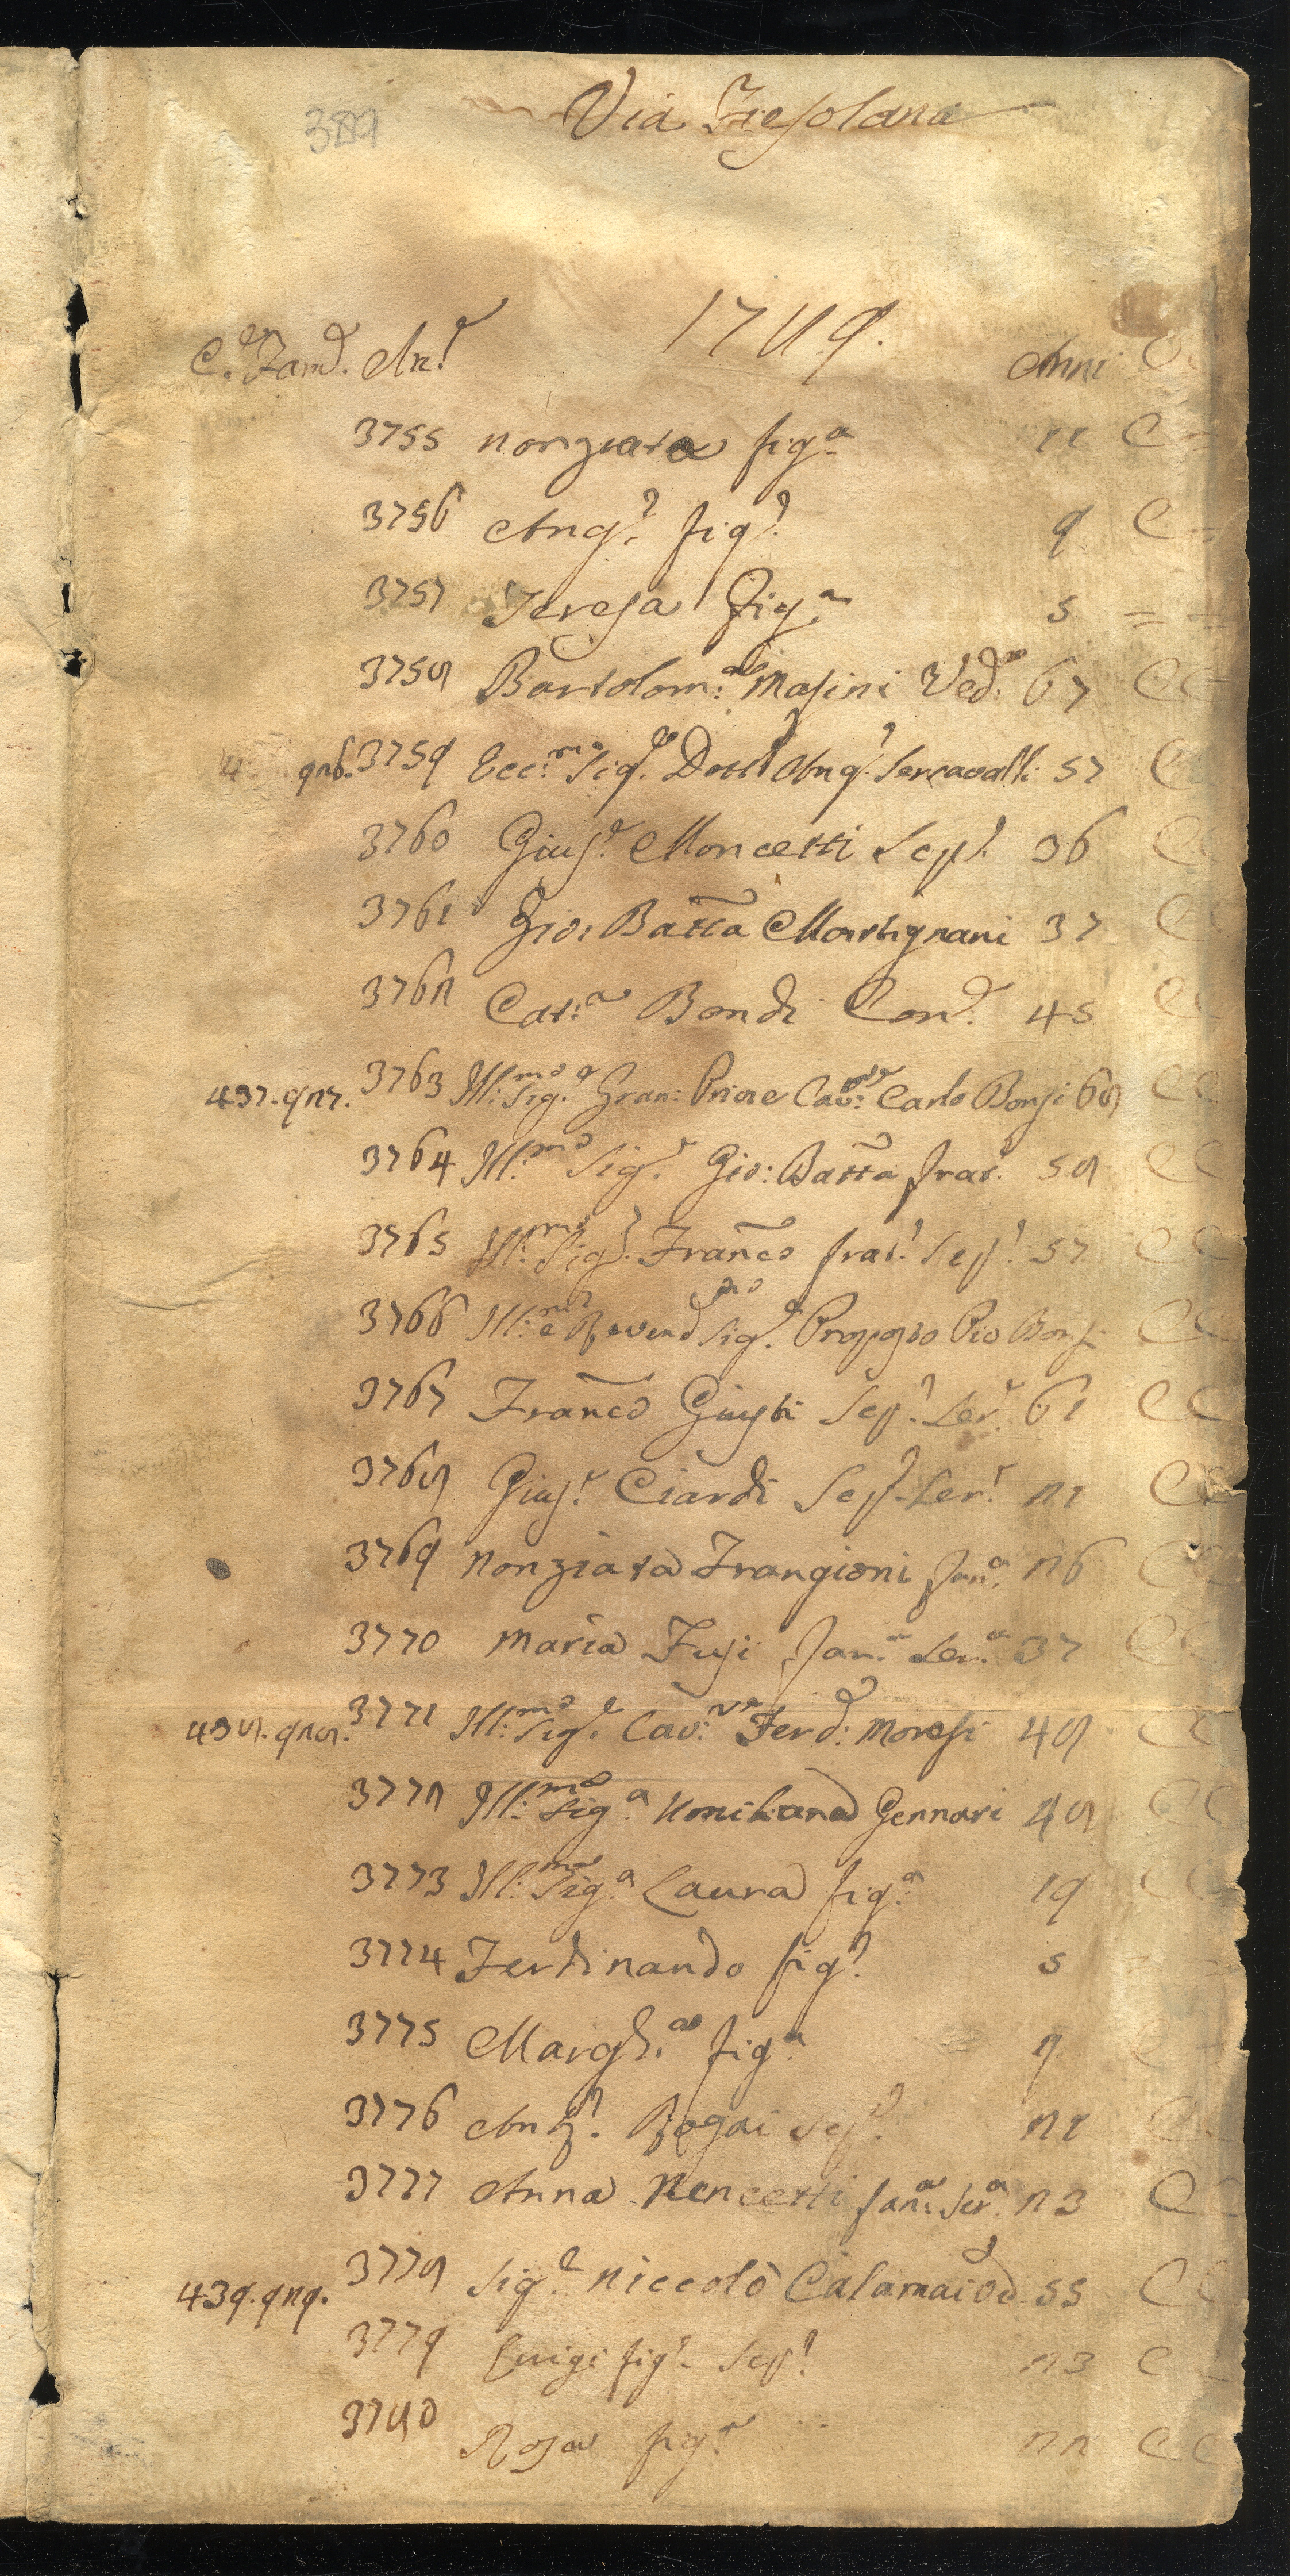 389
Via Fiesolana
1789.
C.e Fam.e An.e Anni C
3755 Nonziata fig.a 21 C =
3756 Ang.o fig.o 9 C =
3757 Teresa fig.a 5 = =
3758 Bartolom:a Masini Ved:a 67 C C
926. 3759 Ecc:mo Sig.e Dott.e Ang.o Sercavalli 57 C
3760 Gius.e Moncetti Sep.o 36 C C
3761 Gio: Batta Martignani 37 C
3762 Cat:a Bondi Con.e 45 C C
437. 927. 3763 Ill:mo Sig.e Gran: Priore Cav:re Carlo Bonsi 68 C C
3764 Ill:mo Sig.e Gio: Batta frat. 58 C C
3765 Ill:mo Sig.e Franco frat.o Sep.o 57 C C
3766 Ill:mo e Revend.mo Sig.e Proposto Pio Bonsi C C
3767 Franco Giusti Sep.o Ser.e 61 C C
3768 Gius.e Ciardi Sep.o Ser.e 21 C C
3769 Nonziata Frangioni fan.a 26 C C
3770 Maria Fusi fan.a Ser.a 37 C C
438. 928. 3771 Ill:mo Sig.e Cav:re Ferd: Moresi 48 C C
3772 Ill:ma Sig.a Umiliana Gennari 48 C C
3773 Ill:ma Sig.a Laura fig.a 19 C C
3774 Ferdinando fig.o 5
3775 Margh.a fig.a 9 C
3776 Ant.o Bogai Sep.o 21 C
3777 Anna Nencetti fan:a Ser.a 23 C
439. 929. 3778 Sig.e Niccolò Calamai Ved.o 55 C C
3779 Luigi fig.o Sep.o 23 C
3780 Rosa fig.a 22 C C